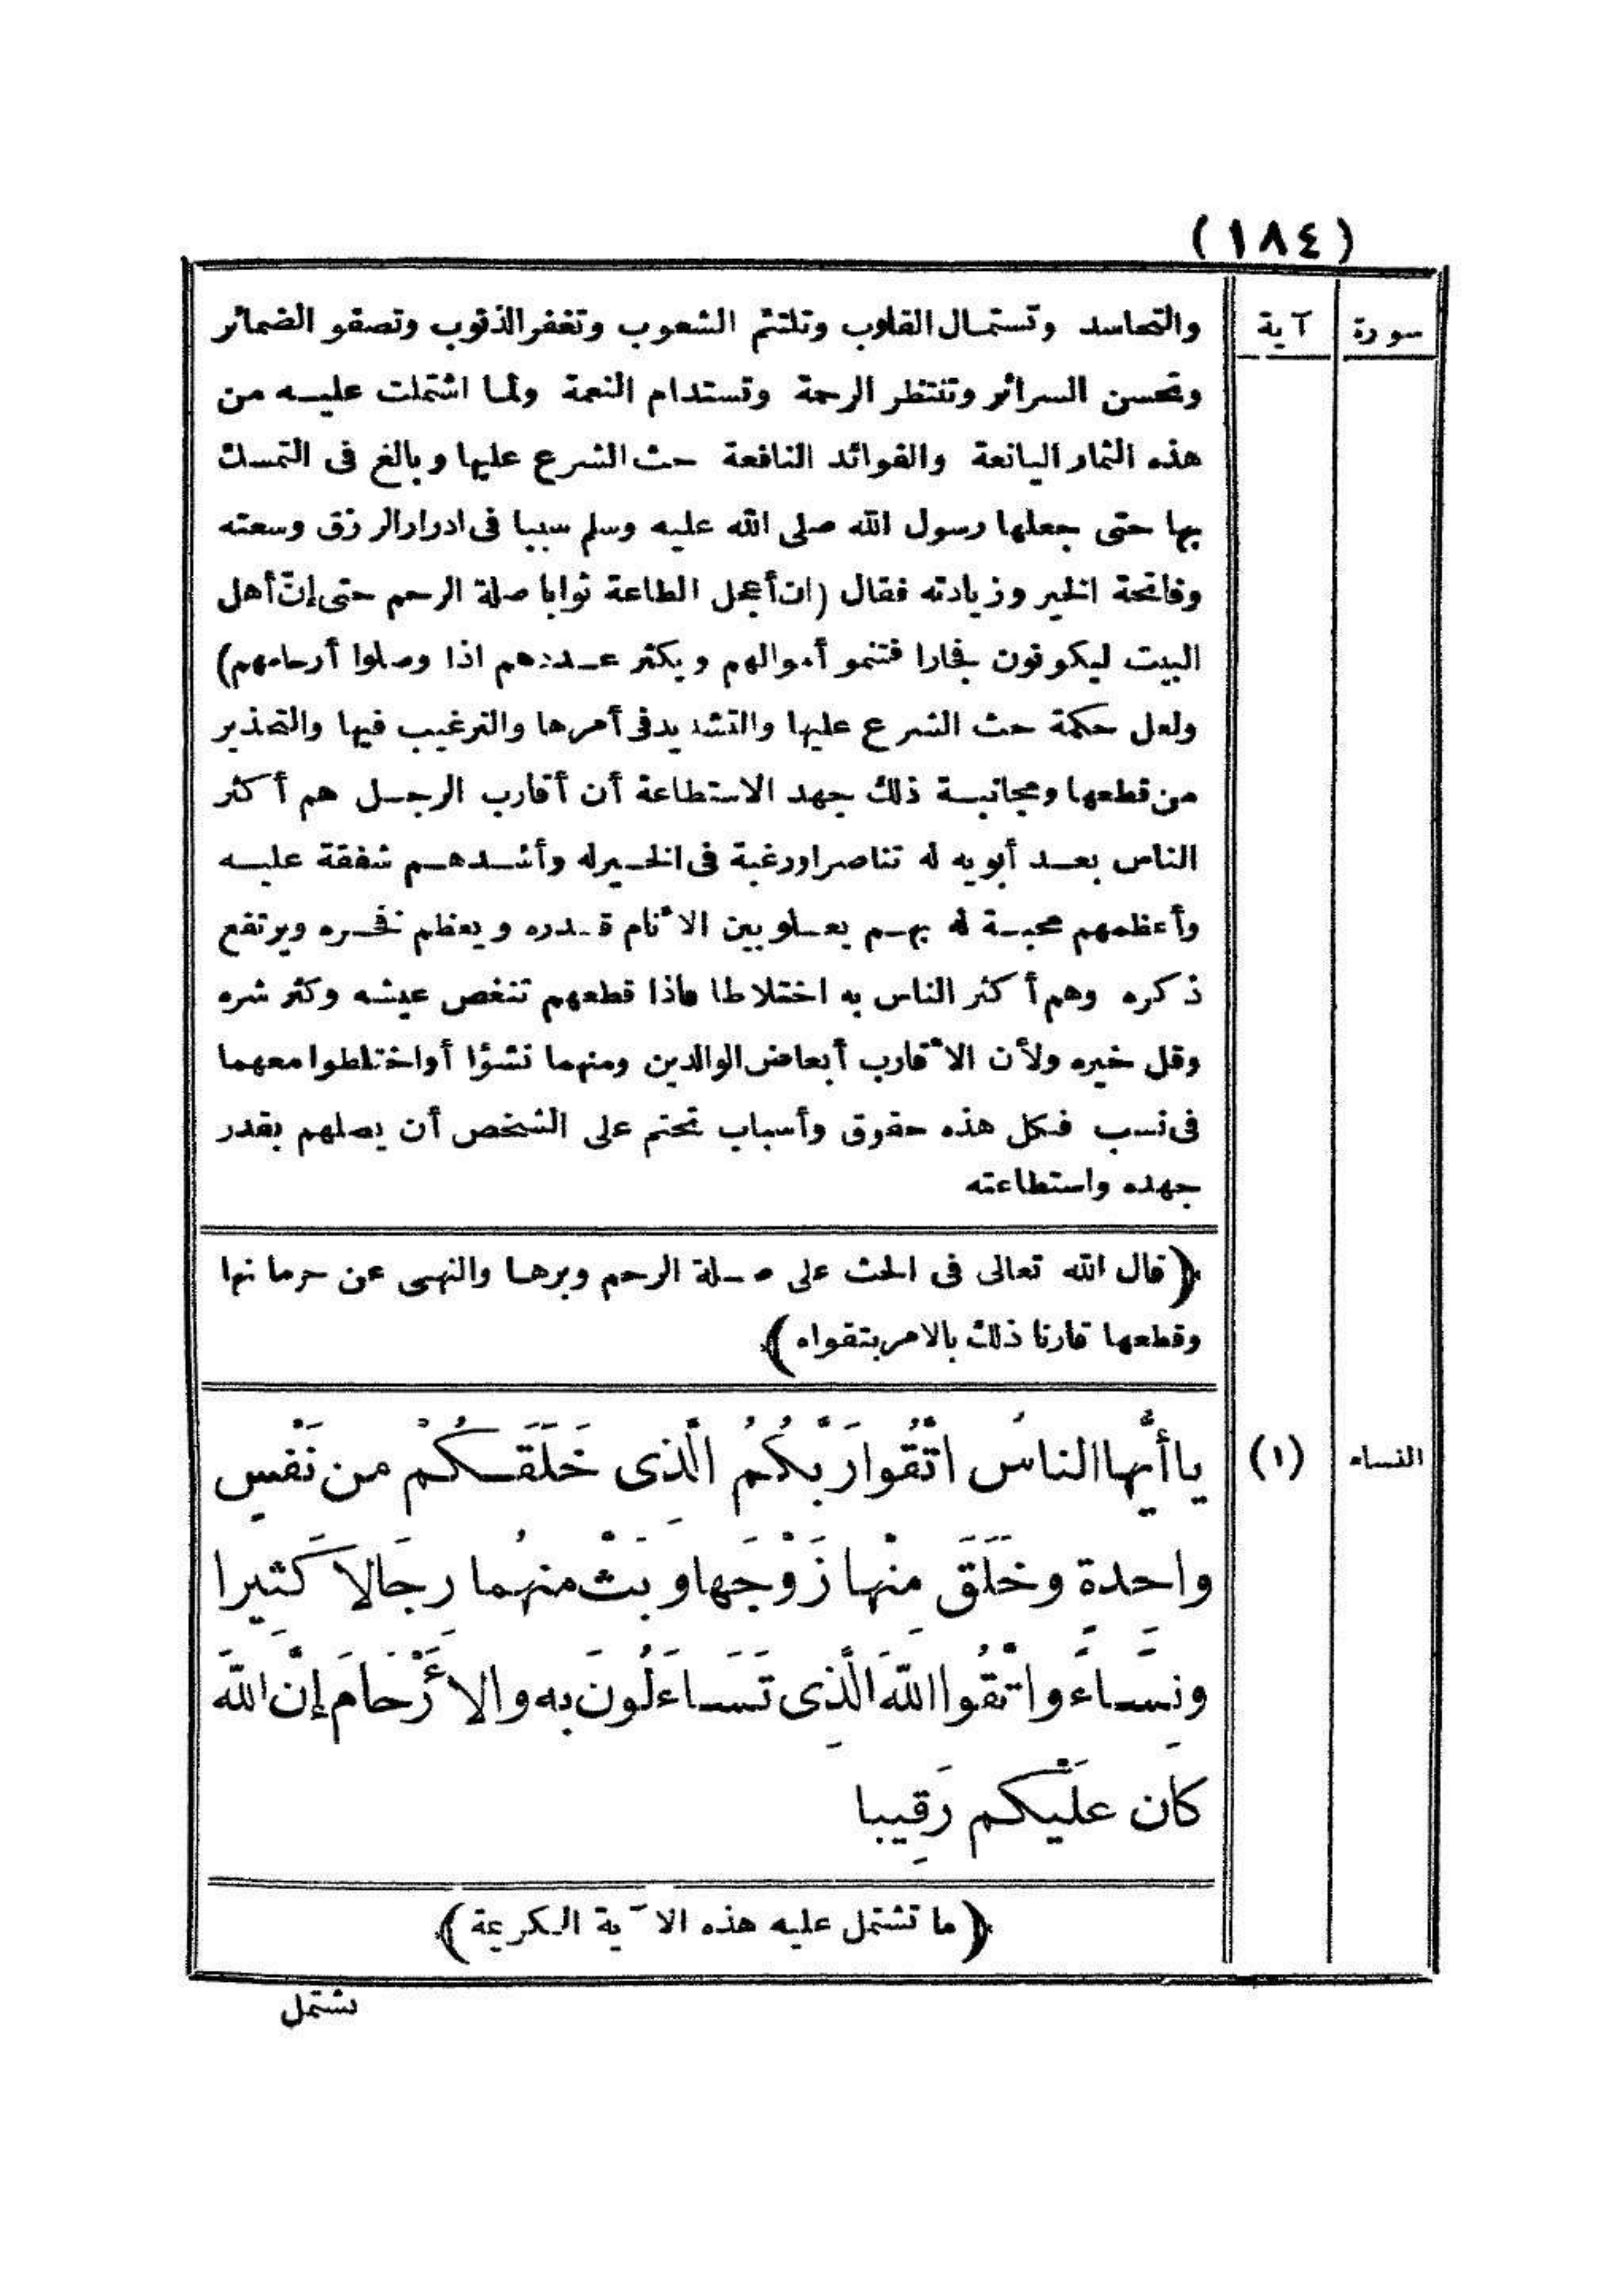 (١٨٤)
سورة آية
والتحاسد وتستمال القلوب وتلتئم الشعوب وتغفر الذنوب وتصفو الضمائر
وتحسن السرائر وتنتظر الرحمة وتستدام النعمة ولما اشتملت عليه من
هذه الثمار اليانعة والفوائد النافعة حث الشرع عليها وبالغ فى التمسك
بها حتى جعلها رسول الله صلى الله عليه وسلم سببا فى ادرار الرزق وسعته
وفاتحة الخير وزيادته فقال (ان أعجل الطاعة ثوابا صلة الرحم حتى إنّ أهل
البيت ليكونون فجارا فتنمو أموالهم ويكثر عددهم اذا وصلوا أرحامهم)
ولعل حكمة حث الشرع عليها والتشديد فى أمرها والترغيب فيها والتحذير
من قطعها ومجانبة ذلك جهد الاستطاعة أن أقارب الرجل هم أكثر
الناس بعد أبويه له تناصرا ورغبة فى الخير له وأشدهم شفقة عليه
وأعظمهم محبة له بهم يعلو بين الأنام قدره ويعظم فخره ويرتفع
ذكره وهم أكثر الناس به اختلاطا فاذا قطعهم تنغص عيشه وكثر شره
وقل خيره ولأن الأقارب أبعاض الوالدين ومنهما نشؤا أو اختلطوا معهما
فى نسب فكل هذه حقوق وأسباب تحتم على الشخص أن يصلهم بقدر
جهده واستطاعته
﴿قال الله تعالى فى الحث على صلة الرحم وبرها والنهى عن حرمانها
وقطعها قارنا ذلك بالامر بتقواه﴾
النساء (١) ياأَيُّها الناسُ اتَّقُوا رَبَّكُمُ الَّذِى خَلَقَكُمْ من نَفْسٍ
واحِدةٍ وخَلَقَ مِنْها زَوْجَها وبَثَّ منهُما رِجَالاً كَثِيرا
ونِسَاءً واتَّقُوا اللهَ الَّذِى تَسَاءَلُونَ بِه والأَرْحَامَ إنَّ اللهَ
كان عَلَيْكم رَقِيبا
﴿ما تشتمل عليه هذه الآية الكريمة﴾
تشتمل